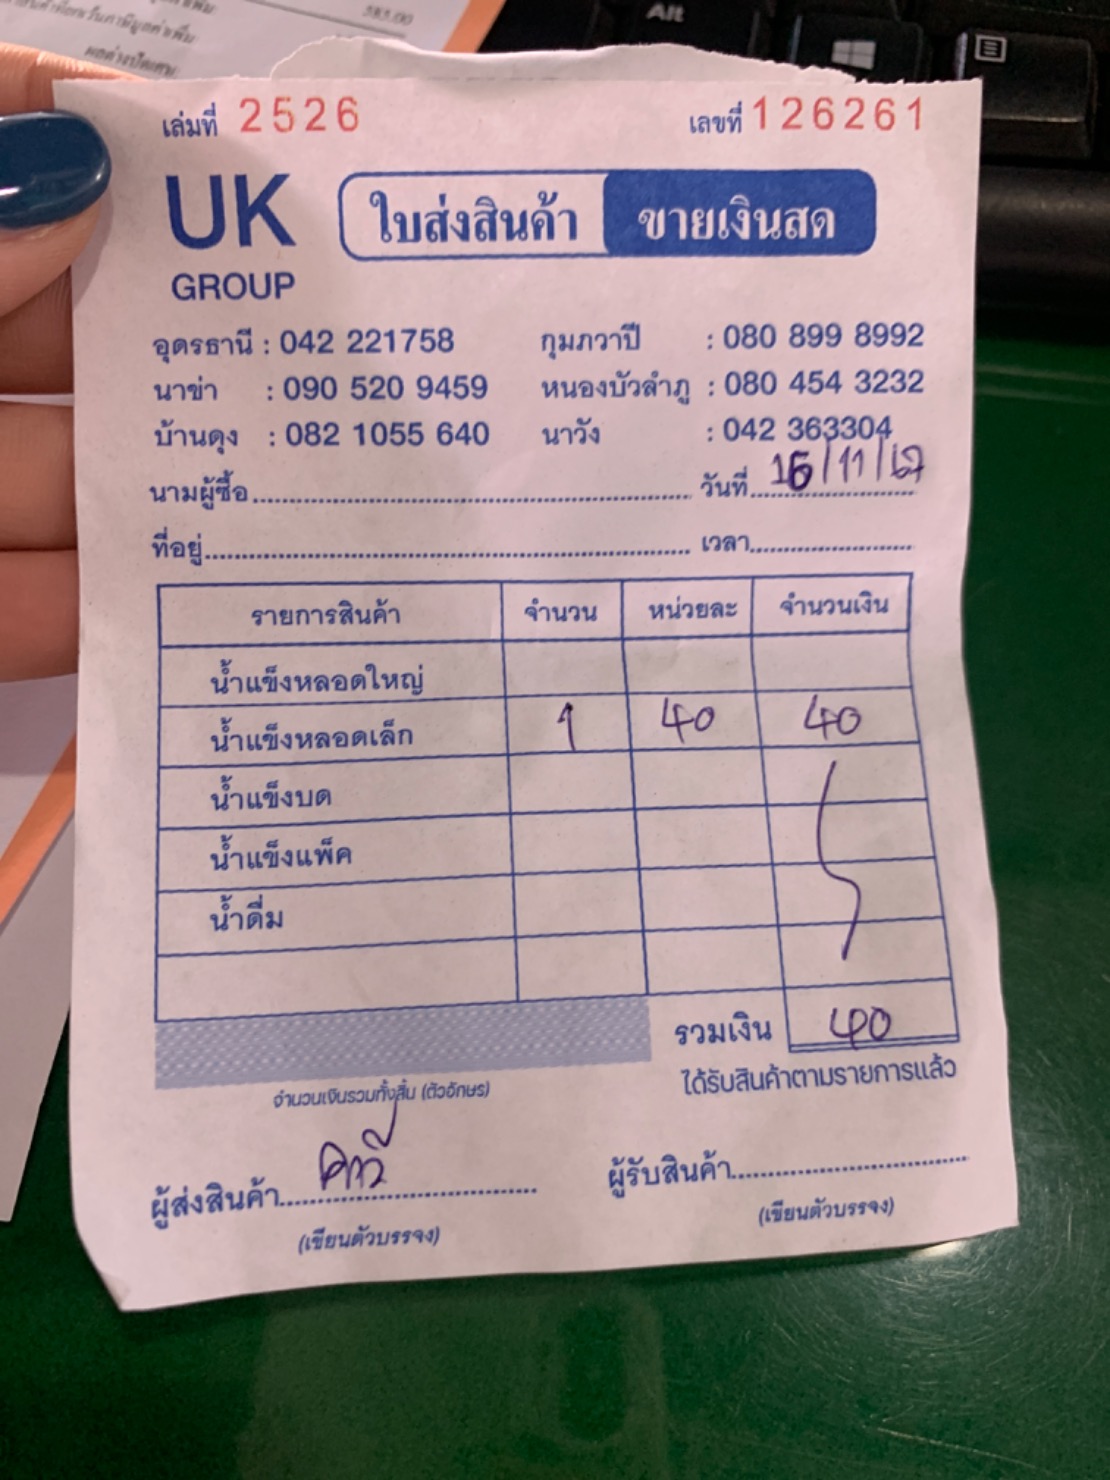 385.00
Alt
เล่มที่ 2526 เลขที่ 126261
UK GROUP
ใบส่งสินค้า ขายเงินสด
อุดรธานี : 042 221758 กุมภวาปี : 080 899 8992
นาข่า : 090 520 9459 หนองบัวลำภู : 080 454 3232
บ้านดุง : 082 1055 640 นาวัง : 042 363304
นามผู้ซื้อ วันที่ 16/11/67
ที่อยู่ เวลา
รายการสินค้า จำนวน หน่วยละ จำนวนเงิน
น้ำแข็งหลอดใหญ่
น้ำแข็งหลอดเล็ก 1 40 40
น้ำแข็งบด
น้ำแข็งแพ็ค
น้ำดื่ม
รวมเงิน 40
จำนวนเงินรวมทั้งสิ้น (ตัวอักษร) ได้รับสินค้าตามรายการแล้ว
ผู้ส่งสินค้า ผู้รับสินค้า
(เขียนตัวบรรจง) (เขียนตัวบรรจง)